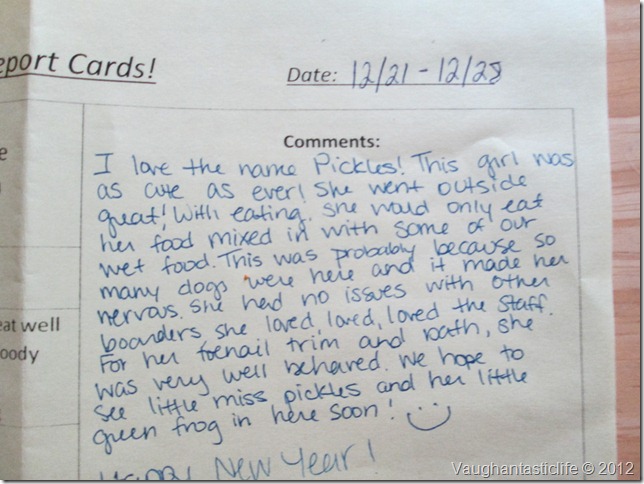 eport Cards!
Date: 12/21 - 12/28
Comments:
I love the name Pickles! This girl was
as cute as ever! She went outside
great! With eating, she would only eat
her food mixed in with some of our
wet food. This was probably because so
many dogs were here and it made her
nervous. She had no issues with other
boarders she loved, loved, loved the staff.
For her toenail trim and bath, she
was very well behaved. We hope to
see little miss pickles and her little
green frog in here soon!
Happy New Year!
e
eat well
oody
Vaughantasticlife © 2012